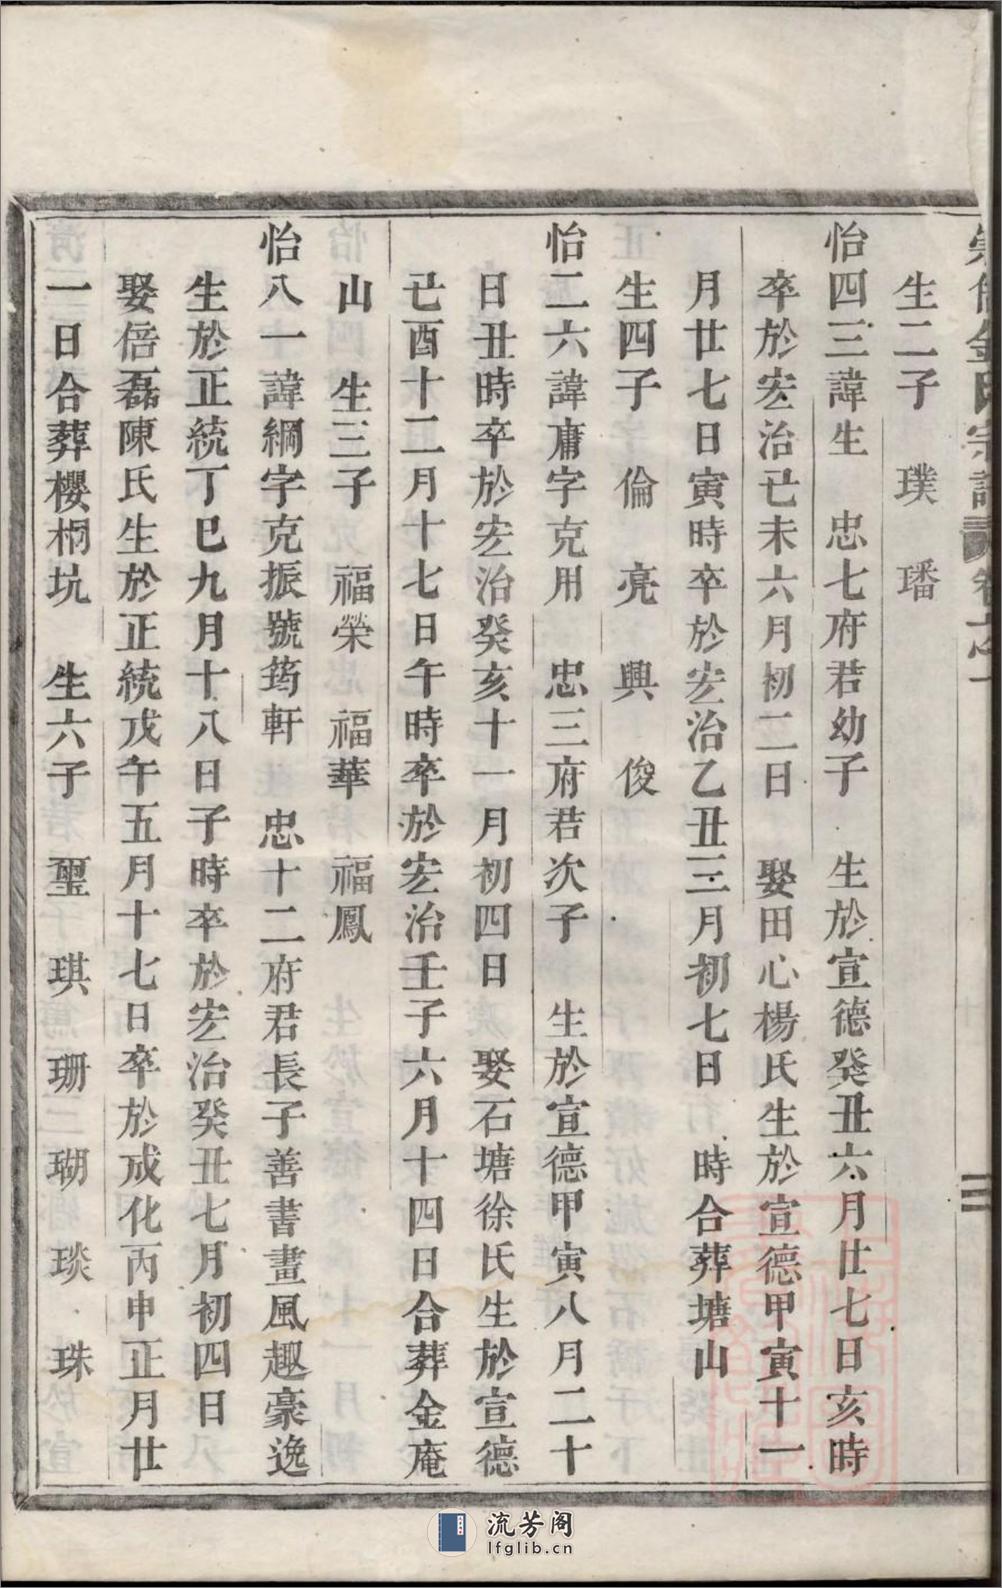 金氏宗譜 卷之一
生二子 璞 璠
怡四三諱生 忠七府君幼子 生於宣德癸丑六月廿七日亥時
卒於宏治己未六月初二日 娶田心楊氏生於宣德甲寅十一
月廿七日寅時卒於宏治乙丑三月初七日 時合葬塘山
生四子 倫 亮 興 俊
怡二六諱庸字克用 忠三府君次子 生於宣德甲寅八月二十
日丑時卒於宏治癸亥十一月初四日 娶石塘徐氏生於宣德
己酉十二月十七日午時卒於宏治壬子六月十四日合葬金庵
山 生三子 福榮 福華 福鳳
怡八一諱綱字克振號筠軒 忠十二府君長子善書畫風趣豪逸
生於正統丁巳九月十八日子時卒於宏治癸丑七月初四日
娶倍磊陳氏生於正統戊午五月十七日卒於成化丙申正月廿
一日合葬櫻桐坑 生六子 璽 琪 珊 瑚 琰 珠
流芳阁
lfglib.cn